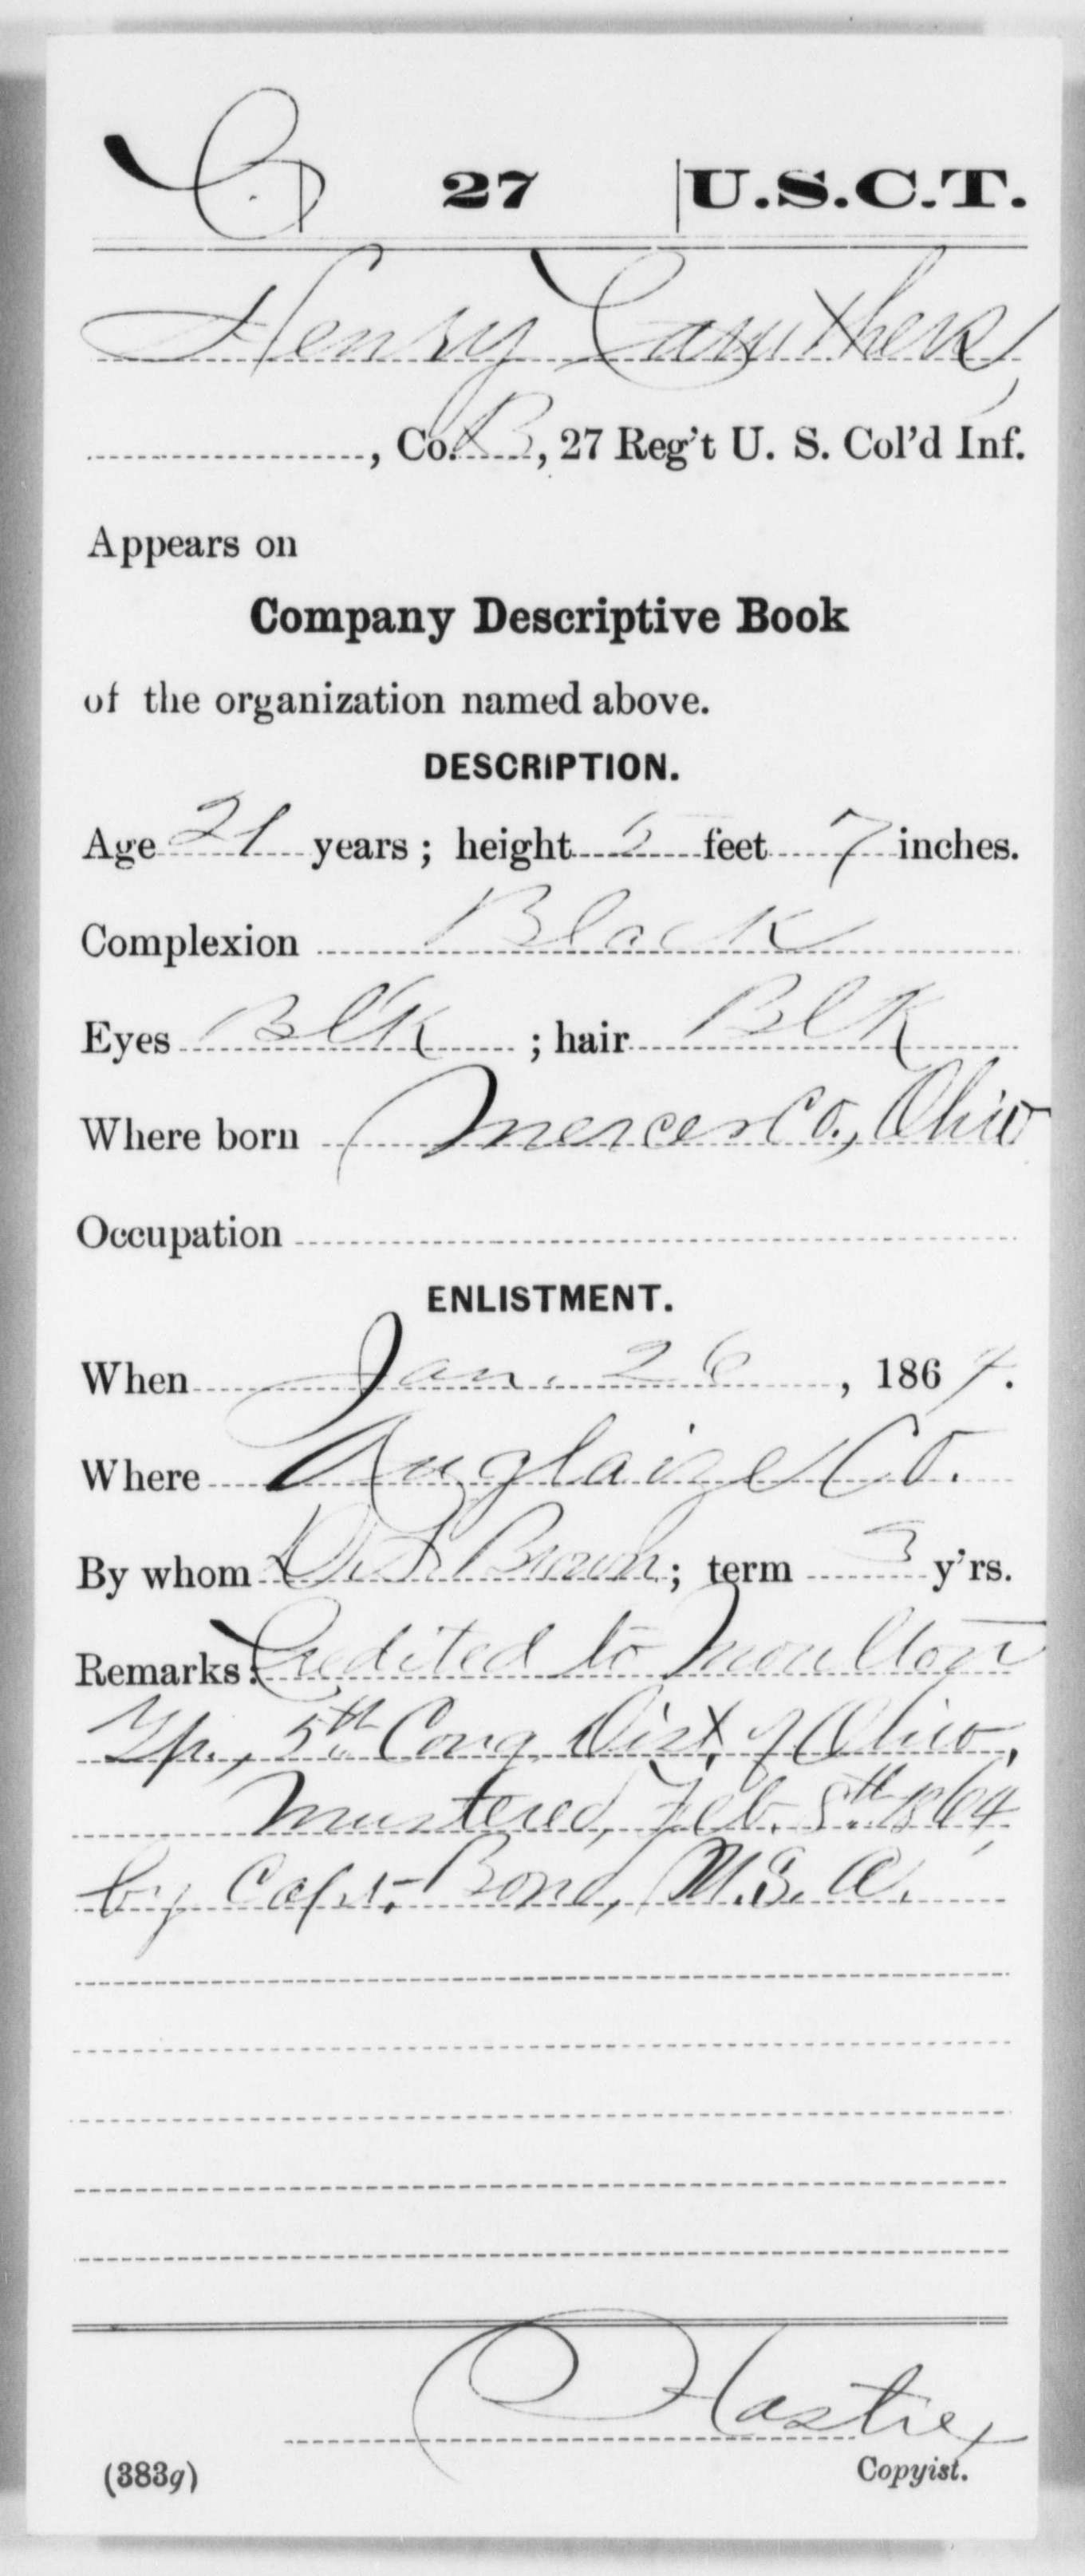 C | 27 | U.S.C.T.
Henry Caruthers
, Co. B, 27 Reg't U. S. Col'd Inf.
Appears on
Company Descriptive Book
of the organization named above.
DESCRIPTION.
Age 21 years; height 5 feet 7 inches.
Complexion Black
Eyes Blk ; hair Blk
Where born Mercer Co., Ohio
Occupation
ENLISTMENT.
When Jan. 26, 1864.
Where Auglaize Co.
By whom Brown; term 3 y'rs.
Remarks: Credited to Moulton
Tp., 5th Cong Dist. of Ohio,
Mustered, Feb. 8th 1864,
by Capt. Bond, U.S.A.
Hastie
(383g) Copyist.